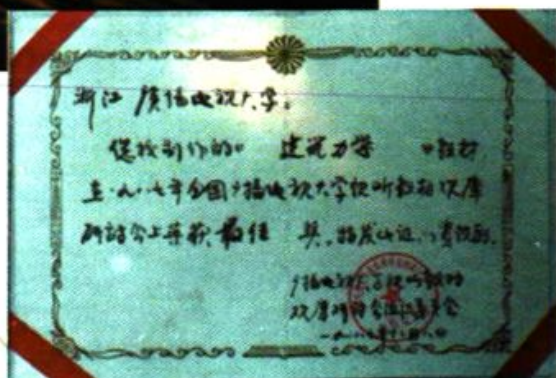 浙江广播电视大学:
您校制作的《建筑力学》教材
在一九八七年全国广播电视大学视听教材观摩
研讨会上荣获最佳奖,特发此证,以资鼓励。
广播电视大学视听教材
观摩研讨会